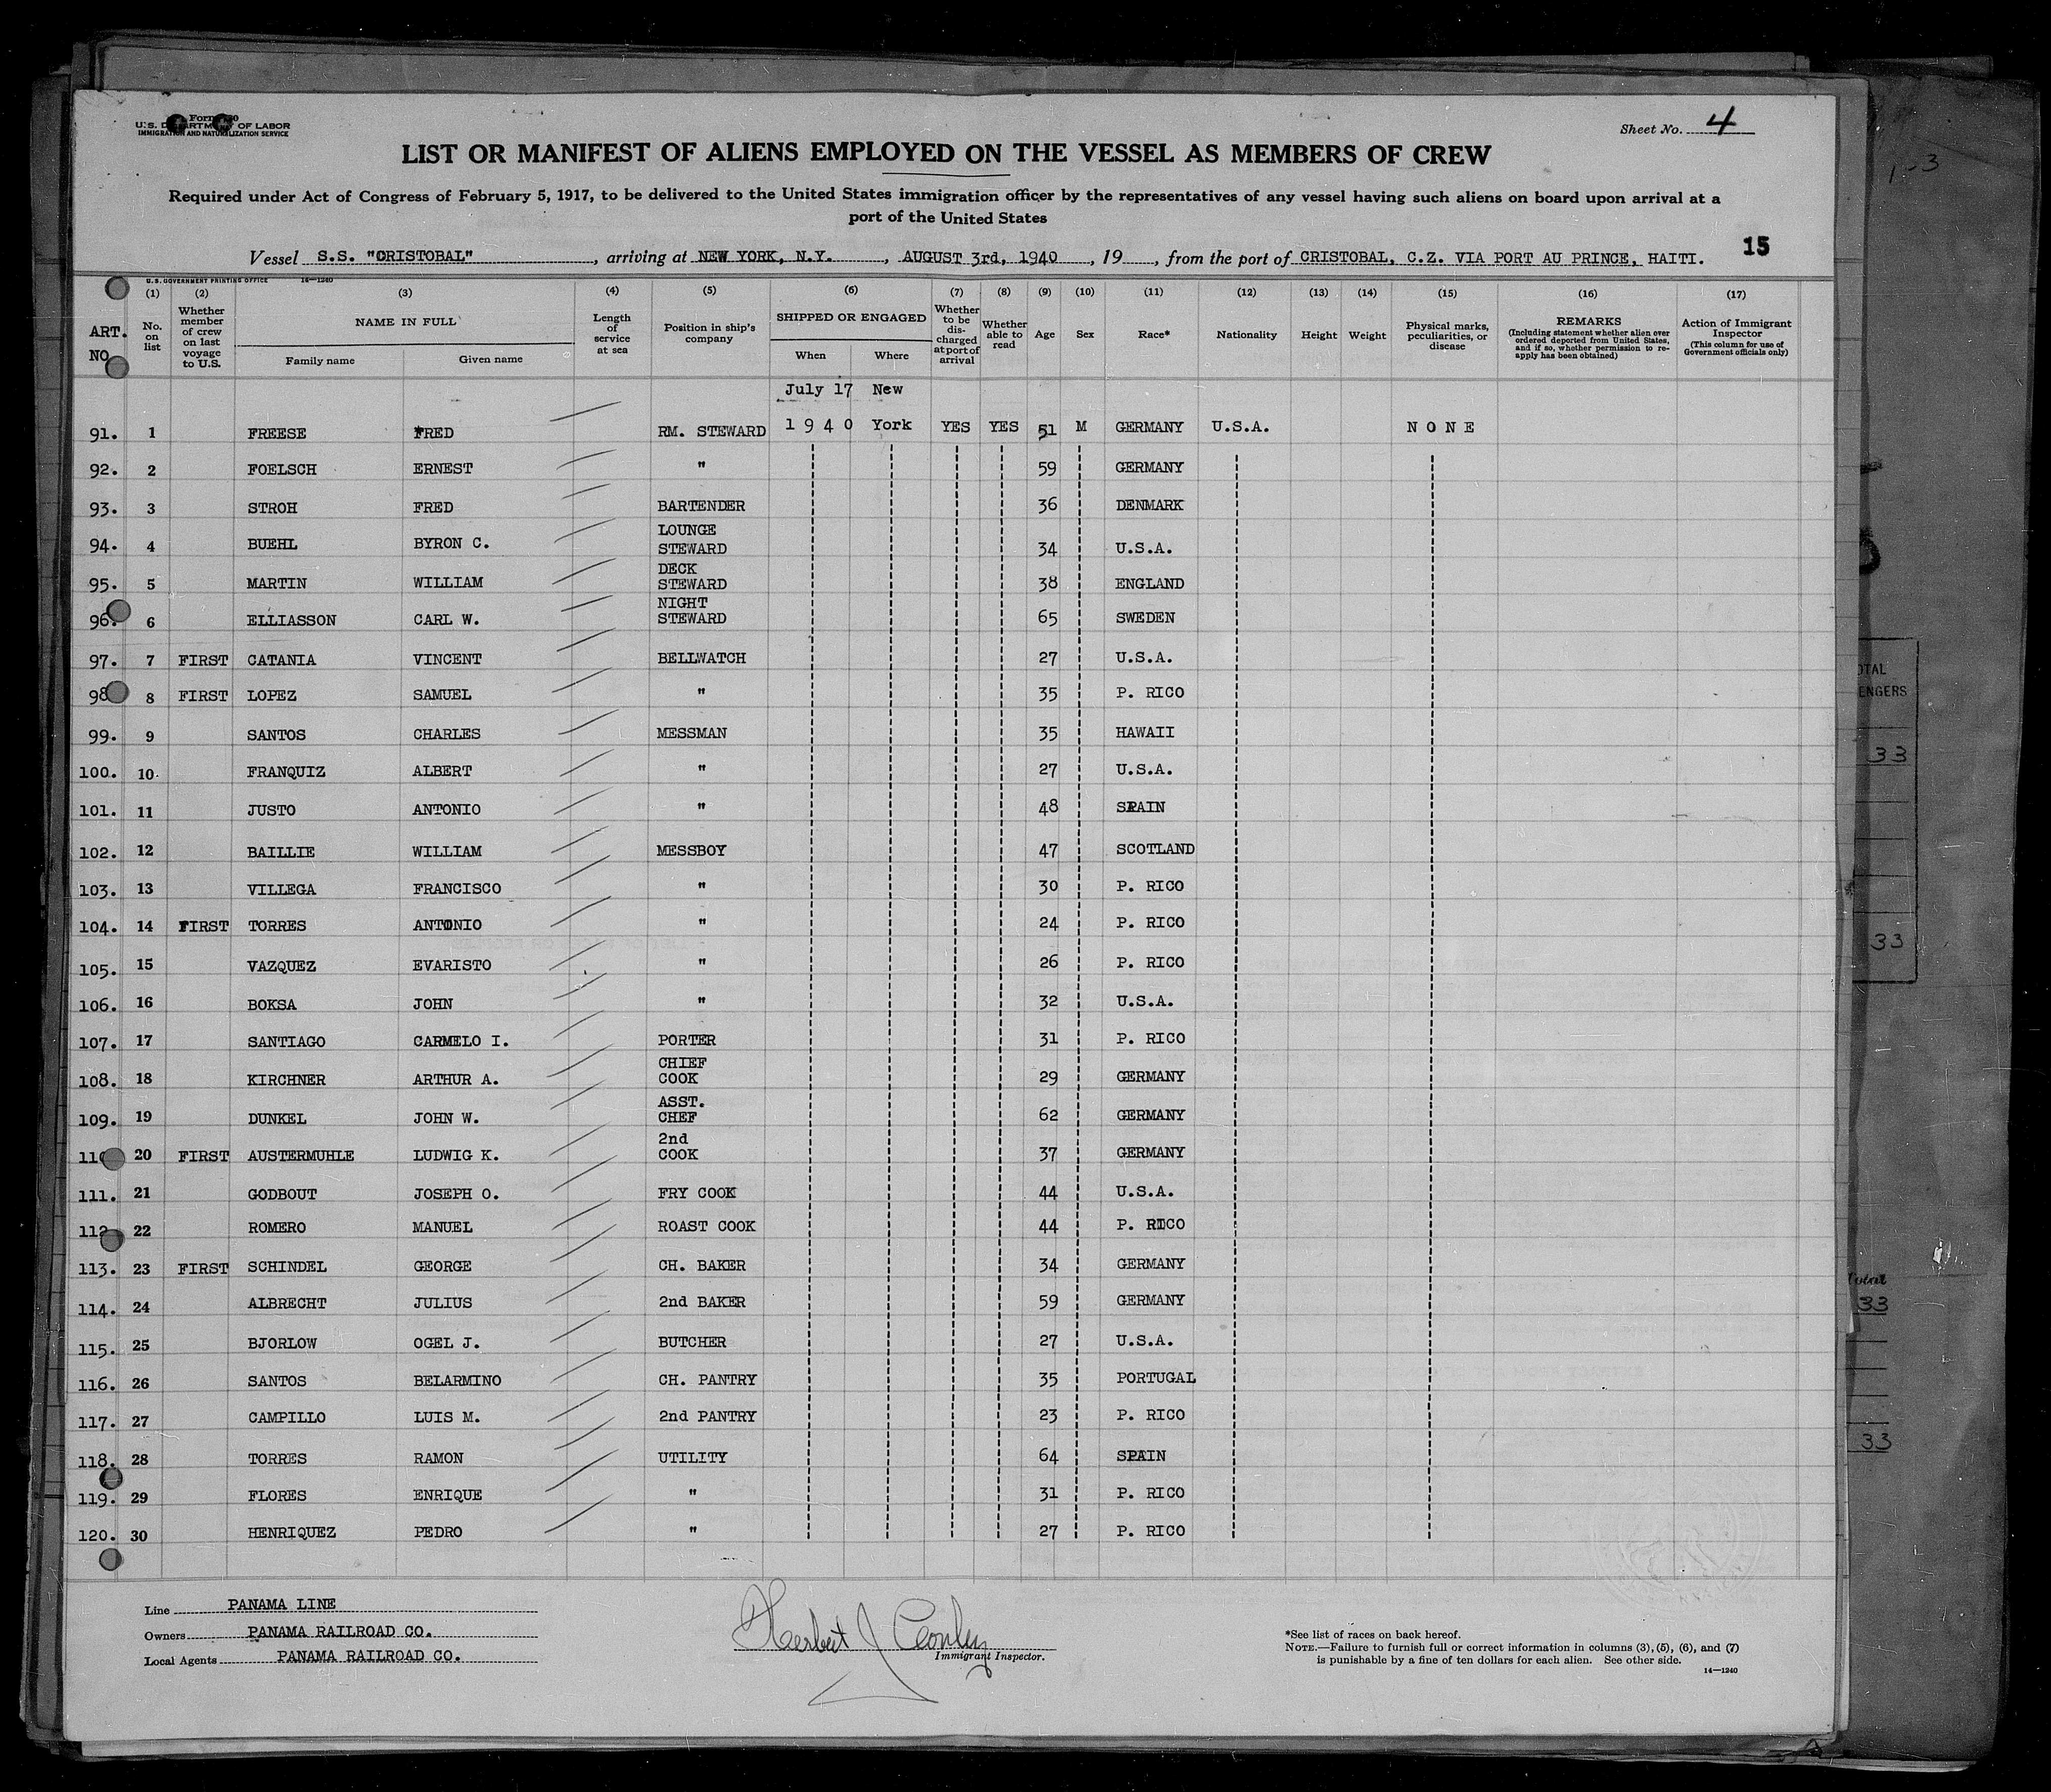 Form 680
U.S. DEPARTMENT OF LABOR
IMMIGRATION AND NATURALIZATION SERVICE
Sheet No. 4
LIST OR MANIFEST OF ALIENS EMPLOYED ON THE VESSEL AS MEMBERS OF CREW
Required under Act of Congress of February 5, 1917, to be delivered to the United States immigration officer by the representatives of any vessel having such aliens on board upon arrival at a
port of the United States
15
Vessel S.S. "CRISTOBAL", arriving at NEW YORK, N.Y., AUGUST 3rd, 1940, 19, from the port of CRISTOBAL, C.Z. VIA PORT AU PRINCE, HAITI.
U.S. GOVERNMENT PRINTING OFFICE 14—1240
(1) (2) (3) (4) (5) (6) (7) (8) (9) (10) (11) (12) (13) (14) (15) (16) (17)
ART. NO. No. on list Whether member of crew on last voyage to U.S. NAME IN FULL Family name Given name Length of service at sea Position in ship's company SHIPPED OR ENGAGED When Where Whether to be discharged at port of arrival Whether able to read Age Sex Race* Nationality Height Weight Physical marks, peculiarities, or disease REMARKS (Including statement whether alien ever ordered deported from United States, and if so, whether permission to reapply has been obtained) Action of Immigrant Inspector (This column for use of Government officials only)
July 17 New
91. 1 FREESE FRED RM. STEWARD 1940 York YES YES 51 M GERMANY U.S.A. NONE
92. 2 FOELSCH ERNEST " 59 GERMANY
93. 3 STROH FRED BARTENDER 36 DENMARK
94. 4 BUEHL BYRON C. LOUNGE STEWARD 34 U.S.A.
95. 5 MARTIN WILLIAM DECK STEWARD 38 ENGLAND
96. 6 ELLIASSON CARL W. NIGHT STEWARD 65 SWEDEN
97. 7 FIRST CATANIA VINCENT BELLWATCH 27 U.S.A.
98 8 FIRST LOPEZ SAMUEL " 35 P. RICO
99. 9 SANTOS CHARLES MESSMAN 35 HAWAII
100. 10. FRANQUIZ ALBERT " 27 U.S.A.
101. 11 JUSTO ANTONIO " 48 SPAIN
102. 12 BAILLIE WILLIAM MESSBOY 47 SCOTLAND
103. 13 VILLEGA FRANCISCO " 30 P. RICO
104. 14 FIRST TORRES ANTONIO " 24 P. RICO
105. 15 VAZQUEZ EVARISTO " 26 P. RICO
106. 16 BOKSA JOHN " 32 U.S.A.
107. 17 SANTIAGO CARMELO I. PORTER 31 P. RICO
108. 18 KIRCHNER ARTHUR A. CHIEF COOK 29 GERMANY
109. 19 DUNKEL JOHN W. ASST. CHEF 62 GERMANY
110 20 FIRST AUSTERMUHLE LUDWIG K. 2nd COOK 37 GERMANY
111. 21 GODBOUT JOSEPH O. FRY COOK 44 U.S.A.
112 22 ROMERO MANUEL ROAST COOK 44 P. RICO
113. 23 FIRST SCHINDEL GEORGE CH. BAKER 34 GERMANY
114. 24 ALBRECHT JULIUS 2nd BAKER 59 GERMANY
115. 25 BJORLOW OGEL J. BUTCHER 27 U.S.A.
116. 26 SANTOS BELARMINO CH. PANTRY 35 PORTUGAL
117. 27 CAMPILLO LUIS M. 2nd PANTRY 23 P. RICO
118. 28 TORRES RAMON UTILITY 64 SPAIN
119. 29 FLORES ENRIQUE " 31 P. RICO
120. 30 HENRIQUEZ PEDRO " 27 P. RICO
Line PANAMA LINE
Owners PANAMA RAILROAD CO.
Local Agents PANAMA RAILROAD CO.
Herbert J Conley
Immigrant Inspector.
*See list of races on back hereof.
NOTE.—Failure to furnish full or correct information in columns (3), (5), (6), and (7)
is punishable by a fine of ten dollars for each alien. See other side.
14—1240
1-3
33
33
Total
33
33